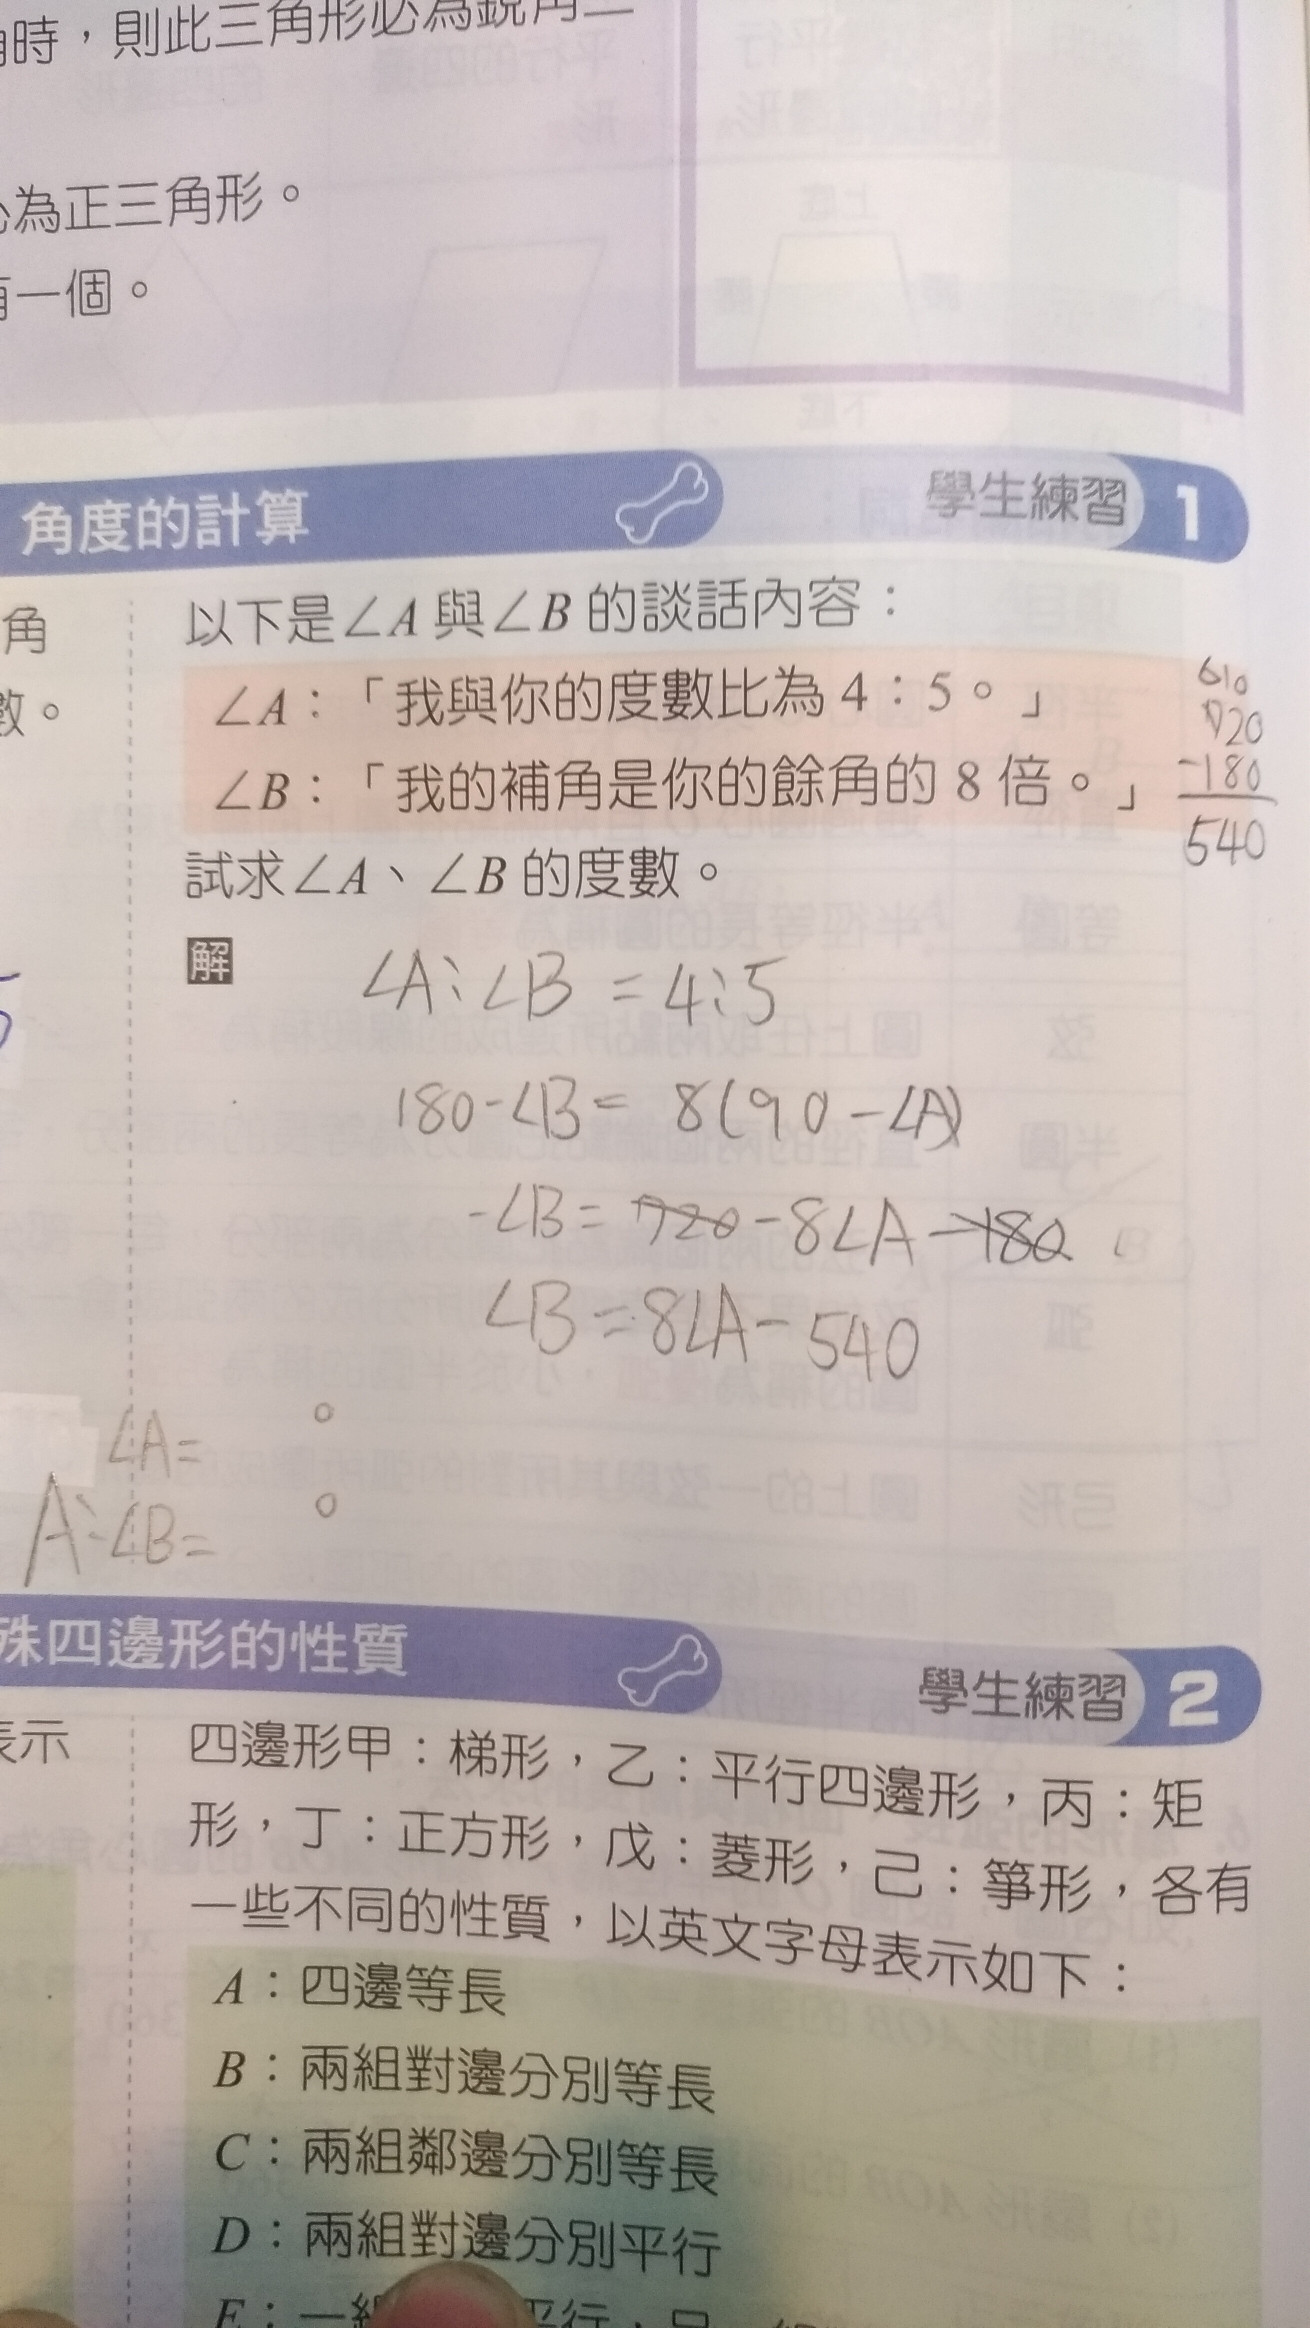 時，則此三角形必為銳角三
為正三角形。
一個。
角度的計算
學生練習 1
角
數。
以下是∠A與∠B的談話內容：
∠A：「我與你的度數比為4：5。」
∠B：「我的補角是你的餘角的8倍。」
試求∠A、∠B的度數。
610
720
-180
540
解
∠A:∠B = 4:5
180-∠B = 8(90-∠A)
-∠B = 720-8∠A-180
∠B = 8∠A-540
∠A= °
A:∠B= °
殊四邊形的性質
學生練習 2
表示
四邊形甲：梯形，乙：平行四邊形，丙：矩
形，丁：正方形，戊：菱形，己：箏形，各有
一些不同的性質，以英文字母表示如下：
A：四邊等長
B：兩組對邊分別等長
C：兩組鄰邊分別等長
D：兩組對邊分別平行
E：一組 平行，